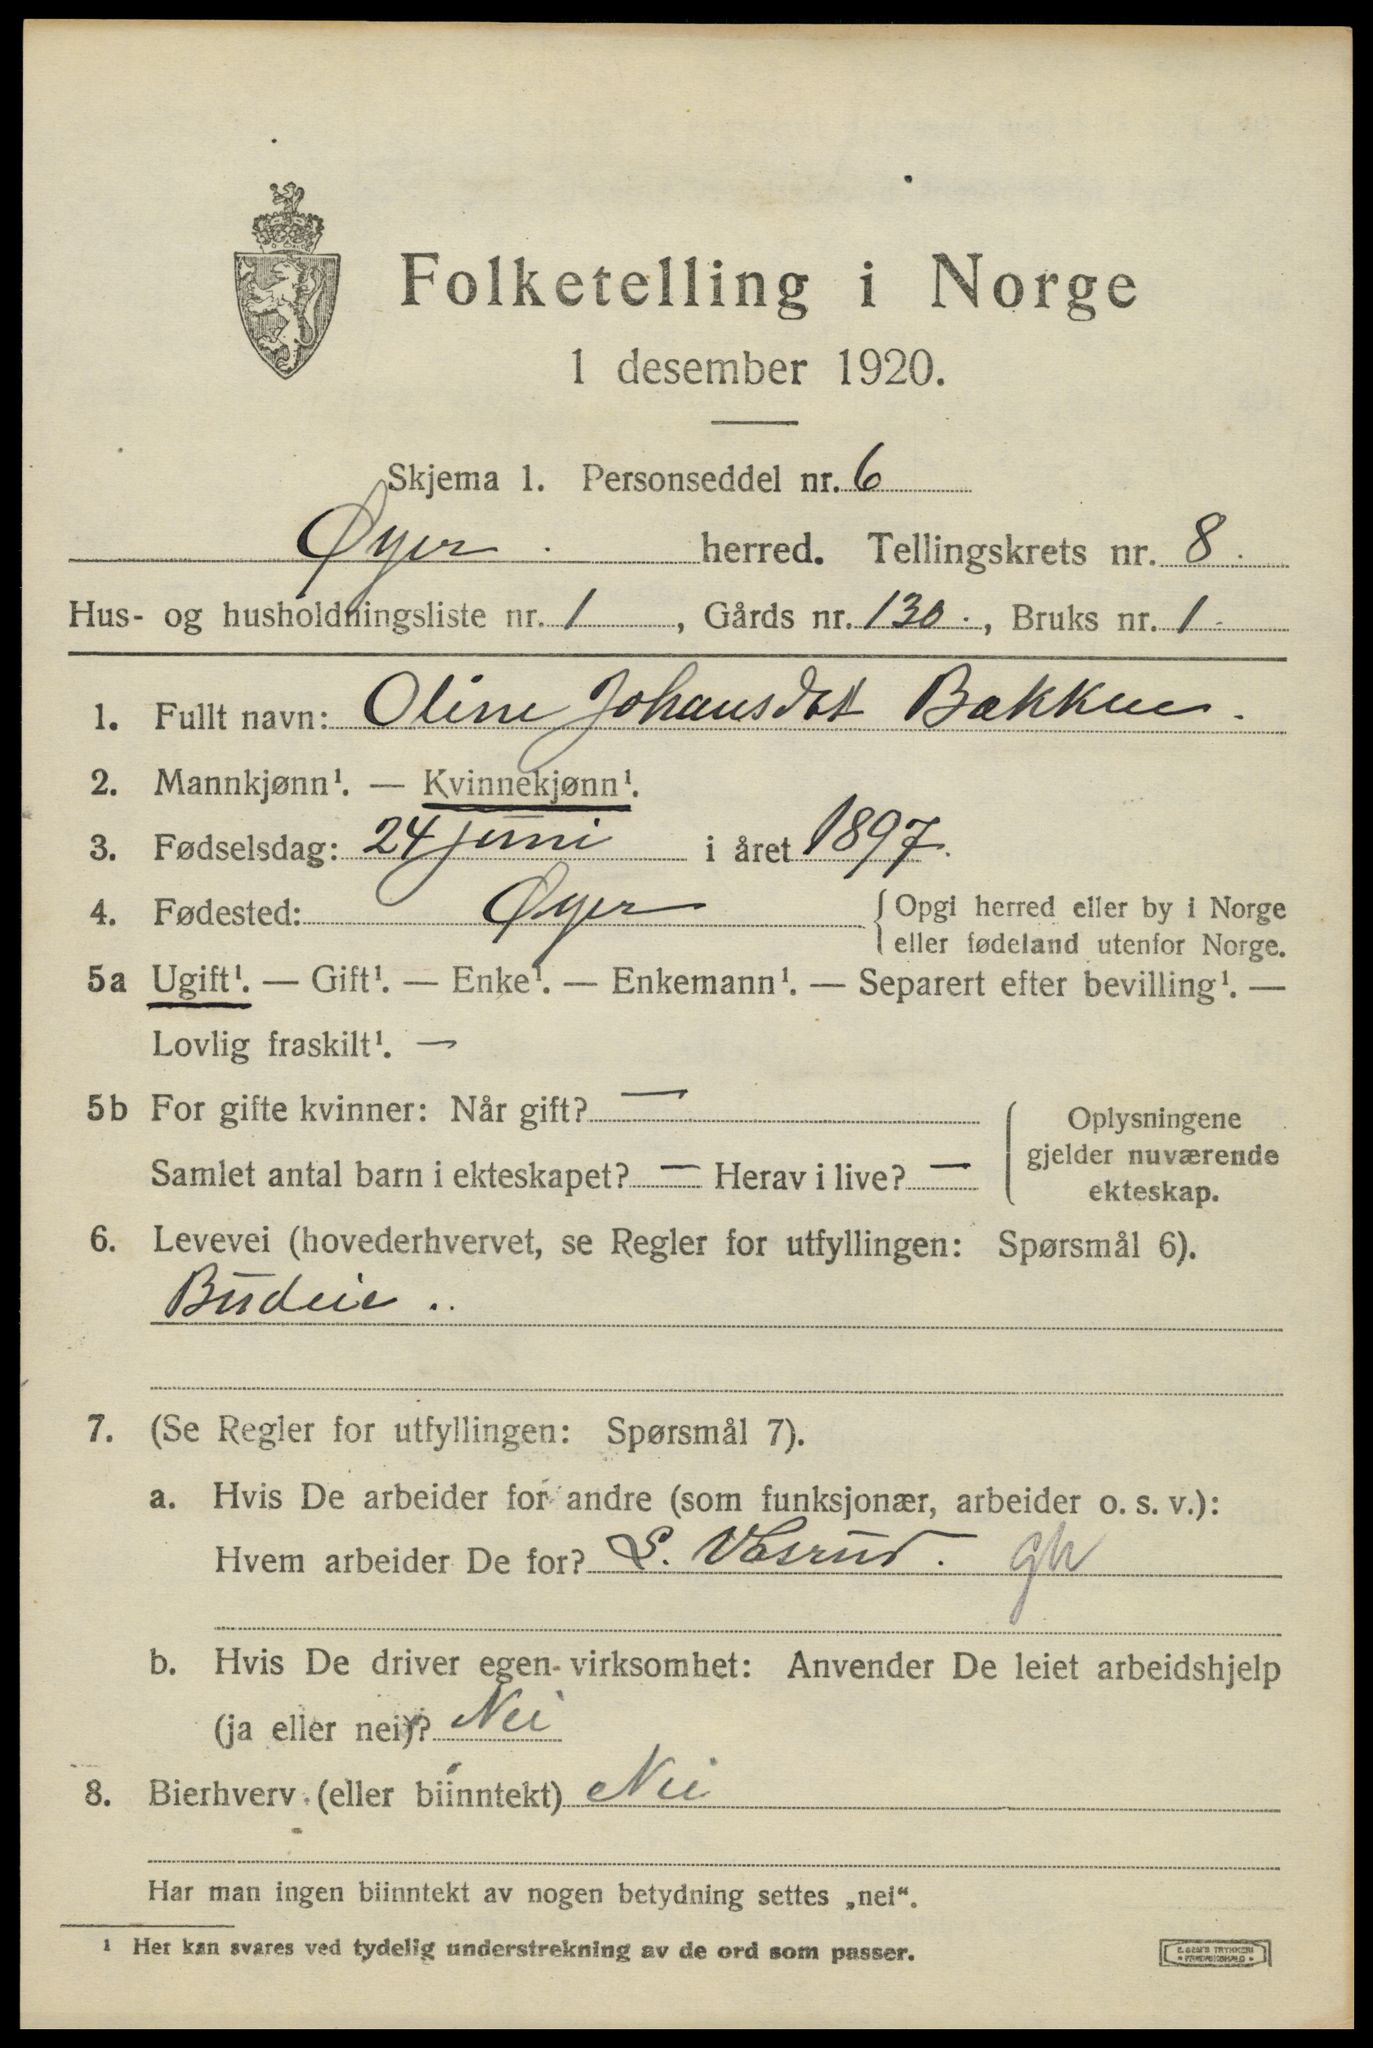 Folketelling i Norge
1 desember 1920.
Skjema 1. Personseddel nr. 6
Øyer herred. Tellingskrets nr. 8.
Hus- og husholdningsliste nr. 1, Gårds nr. 130., Bruks nr. 1.
1. Fullt navn: Oline Johansdat Bakken.
2. Mannkjønn¹. — Kvinnekjønn¹.
3. Fødselsdag: 24 juni i året 1897.
4. Fødested: Øyer {Opgi herred eller by i Norge
eller fødeland utenfor Norge.
5a Ugift¹. — Gift¹. — Enke¹. — Enkemann¹. — Separert efter bevilling¹. —
Lovlig fraskilt¹. —
5b For gifte kvinner: Når gift? —
Samlet antal barn i ekteskapet? — Herav i live? —
Oplysningene
gjelder nuværende
ekteskap.
6. Levevei (hovederhvervet, se Regler for utfyllingen: Spørsmål 6).
Budeie ..
7. (Se Regler for utfyllingen: Spørsmål 7).
a. Hvis De arbeider for andre (som funksjonær, arbeider o. s. v.):
Hvem arbeider De for? gh
b. Hvis De driver egen virksomhet: Anvender De leiet arbeidshjelp
(ja eller nei)? Nei
8. Bierhverv (eller biinntekt) Nei
Har man ingen biinntekt av nogen betydning settes „nei“.
¹ Her kan svares ved tydelig understrekning av de ord som passer.